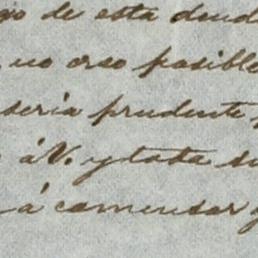 go de esta deud
no creo posible
seria prudente
á V. y toda su
á comensar